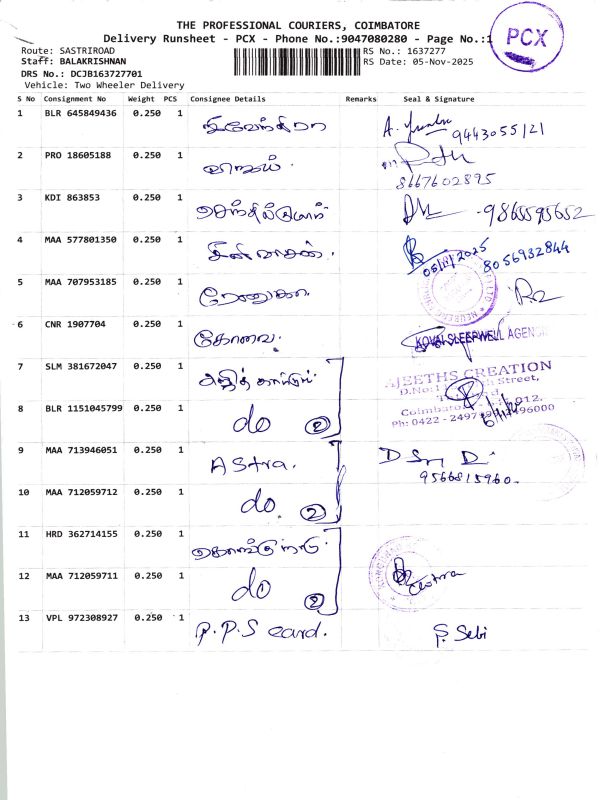 THE PROFESSIONAL COURIERS, COIMBATORE
Delivery Runsheet - PCX - Phone No.:9047080280 - Page No.:1
PCX
Route: SASTRIROAD
RS No.: 1637277
Staff: BALAKRISHNAN
RS Date: 05-Nov-2025
DRS No.: DCJB163727701
Vehicle: Two Wheeler Delivery
S No Consignment No Weight PCS Consignee Details Remarks Seal & Signature
1 BLR 645849436 0.250 1
9443055121
2 PRO 18605188 0.250 1 விஜய்.
8667602895
3 KDI 863853 0.250 1 செந்தில்குமார்
9865595652
4 MAA 577801350 0.250 1 சீனிவாசன்.
05/11/2025
8056932844
5 MAA 707953185 0.250 1 ரேணுகா.
6 CNR 1907704 0.250 1 கோவை.
KOVAI SLEEPWELL AGENC
7 SLM 381672047 0.250 1
AJEETHS CREATION
8 BLR 1151045799 0.250 1 do 2
Ph: 0422 - 2497
9 MAA 713946051 0.250 1 Astra.
9566815960.
10 MAA 712059712 0.250 1 do. 2
11 HRD 362714155 0.250 1 கொங்குநாடு.
12 MAA 712059711 0.250 1 do 2
13 VPL 972308927 0.250 1 P.P.S card.
S. Sebi